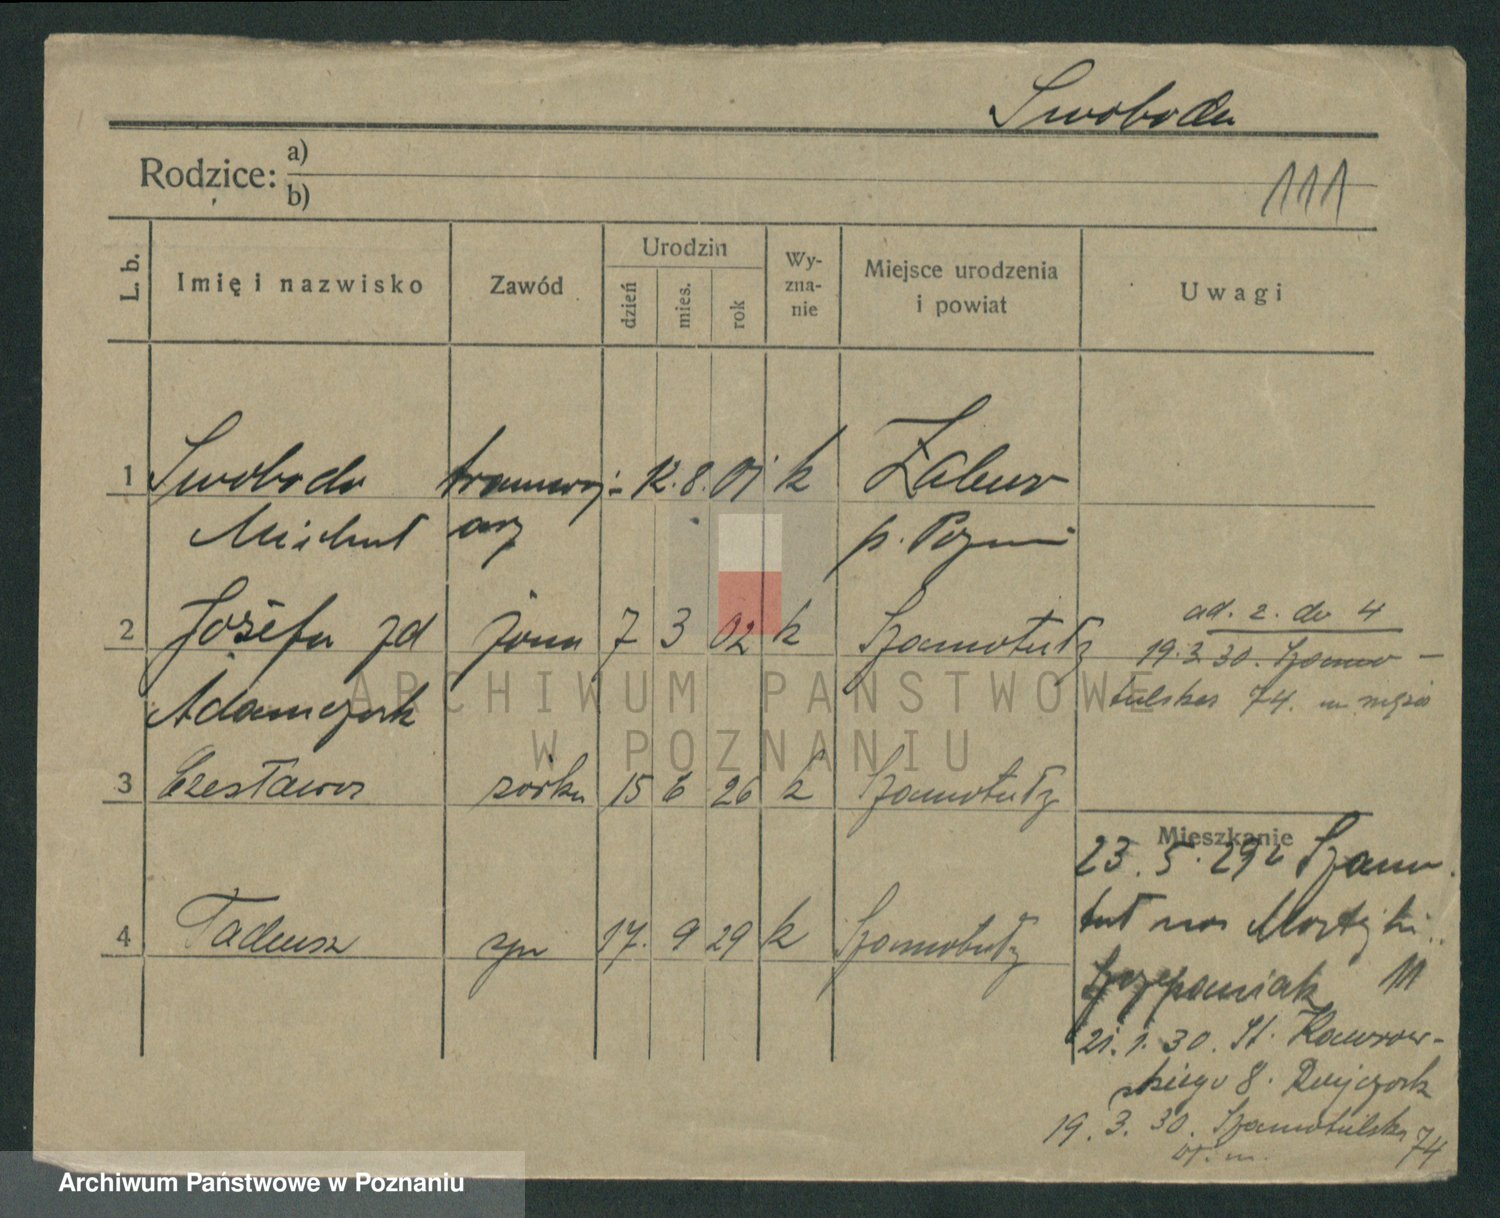 Swoboda
Rodzice: a)
b)
111
L. b.
Imię i nazwisko
Zawód
Urodzin
dzień
mies.
rok
Wy-
zna-
nie
Miejsce urodzenia
i powiat
Uwagi
1 Swoboda tramwaj- 12. 8. 01 k
Michał arz p. Pozn
2 Józefa zd żona 7 3 02 k Szamotuły
Adamczak
ad. 2. do 4
19.3.30. Szamo-
tulska 74.
3 Czesława córka 15 6 26 k Szamotuły
Mieszkanie
23. 5. 29 Szamo
4 Tadeusz syn 17. 9 29 k Szamotuły
Szczepaniak
21. 1. 30. St.
8.
19. 3. 30. Szamotulska
74
ARCHIWUM PAŃSTWOWE
W POZNANIU
Archiwum Państwowe w Poznaniu